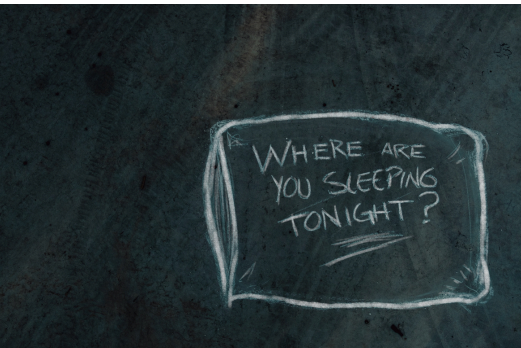 WHERE ARE
YOU SLEEPING
TONIGHT?